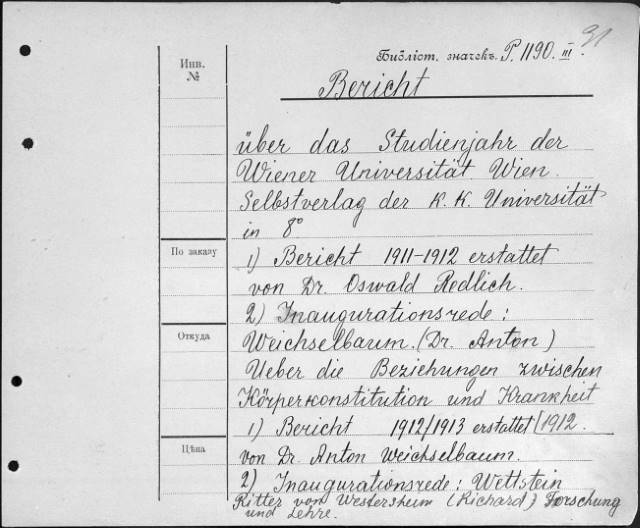 31
Библіот. значекъ. P. 1190. III
Инв.
№
Bericht
über das Studienjahr der
Wiener Universität Wien.
Selbstverlag der K. K. Universität
in 8°
По заказу
1) Bericht 1911-1912 erstattet
von Dr. Oswald Redlich.
2) Inaugurationsrede:
Откуда
Weichselbaum. (Dr. Anton)
Ueber die Beziehungen zwischen
Körperkonstitution und Krankheit
1) Bericht 1912/1913 erstattet [1912.
Цѣна
von Dr. Anton Weichselbaum.
2) Inaugurationsrede: Wettstein
Ritter von Westersheim (Richard) Forschung
und Lehre.